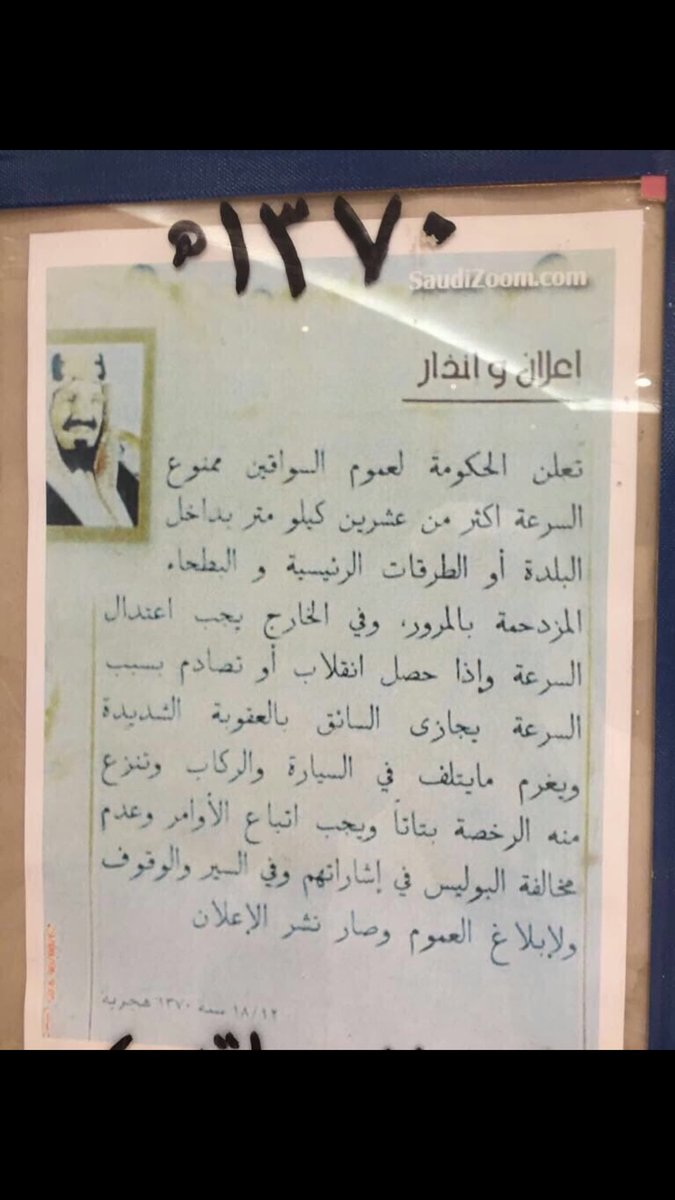 ١٣٧٠هـ
SaudiZoom.com
اعلان و انذار
تعلن الحكومة لعموم السواقين ممنوع
السرعة اكثر من عشرين كيلو متر بداخل
البلدة أو الطرقات الرئيسية و البطحاء
المزدحمة بالمرور، وفي الخارج يجب اعتدال
السرعة وإذا حصل انقلاب أو تصادم بسبب
السرعة يجازى السائق بالعقوبة الشديدة
ويغرم مايتلف في السيارة والركاب وتنزع
منه الرخصة بتاتاً ويجب اتباع الأوامر وعدم
مخالفة البوليس في إشاراتهم وفي السير والوقوف
ولإبلاغ العموم وصار نشر الإعلان
١٨/١٢ سنه ١٣٧٠ هجرية